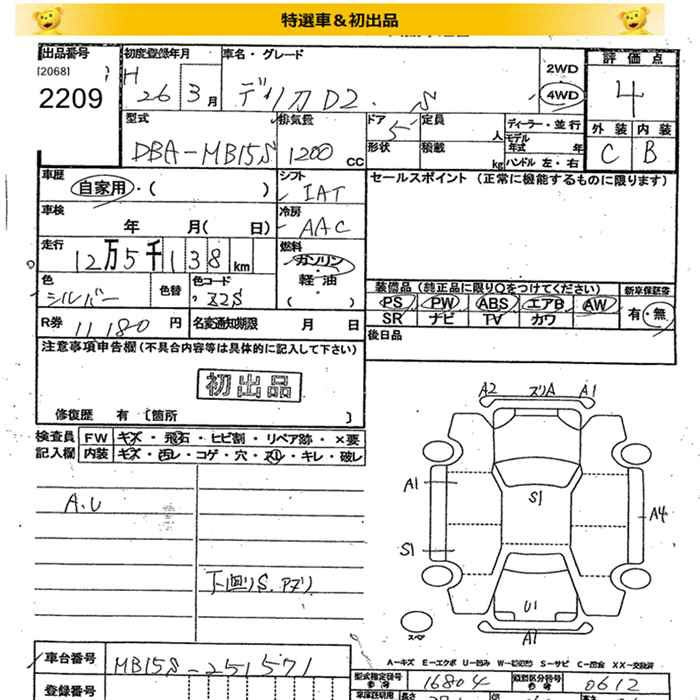 特選車＆初出品
出品番号 初度登録年月 車名・グレード 評価点
[2068] H 2WD
2209 26 3月 デリカD2. S 4WD 4
型式 排気量 ドア 定員 ディーラー・並行 外装 内装
5 人 モデル年式 年
DBA-MB15S 1200 CC 形状 積載 kg ハンドル 左・右 C B
車歴 シフト セールスポイント (正常に機能するものに限ります)
自家用・( ) IAT
車検 冷房
年 月( 日) AAC
走行 燃料
12万5千138 km ガソリン
色 色替 色コード 軽・油 装備品 (純正品に限り○をつけてください) 新車保証書
シルバー Z2S ( ) PS PW ABS エアB AW 有・無
R券 11,180 円 名変通知期限 月 日 SR ナビ TV カワ
注意事項申告欄 (不具合内容等は具体的に記入して下さい) 後日品
初出品
修復歴 有 〔箇所 〕
検査員 FW キズ・飛石・ヒビ割・リペア跡・×要
記入欄 内装 キズ・汚レ・コゲ・穴・スレ・キレ・破レ
A2 ズリA A1
A1 S1
A.U A4
S1
下回りS. Pズリ
U1
スペア A1
A-キズ E-エクボ U-凹み W-補修跡 S-サビ C-腐食 XX-交換済
車台番号 MB15S-251571
型式指定番号 16804 類別区分番号 0612
登録番号 車検証用 長さ